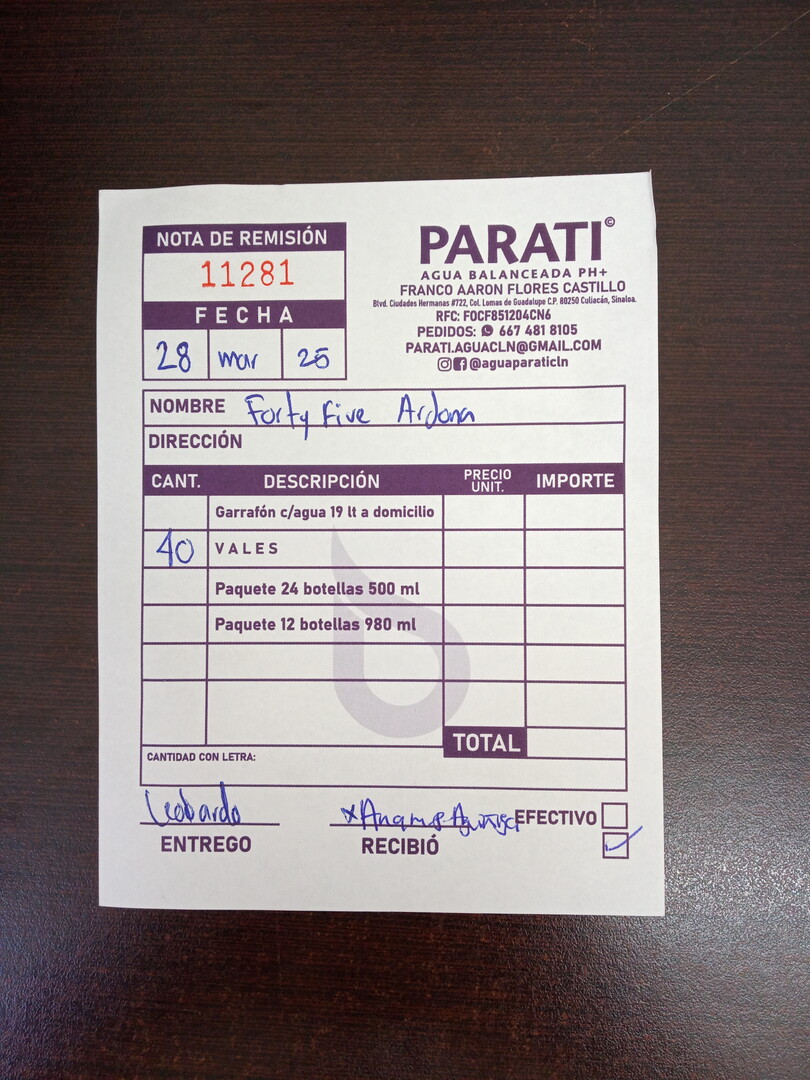 NOTA DE REMISIÓN
11281
FECHA
28 mar 25
PARATI©
AGUA BALANCEADA PH+
FRANCO AARON FLORES CASTILLO
Blvd. Ciudades Hermanas #722, Col. Lomas de Guadalupe C.P. 80250 Culiacán, Sinaloa.
RFC: FOCF851204CN6
PEDIDOS: 667 481 8105
PARATI.AGUACLN@GMAIL.COM
@aguaparaticln
NOMBRE Forty Five Ardona
DIRECCIÓN
CANT. DESCRIPCIÓN PRECIO UNIT. IMPORTE
Garrafón c/agua 19 lt a domicilio
40 VALES
Paquete 24 botellas 500 ml
Paquete 12 botellas 980 ml
TOTAL
CANTIDAD CON LETRA:
Leobardo
ENTREGO
RECIBIÓ
EFECTIVO